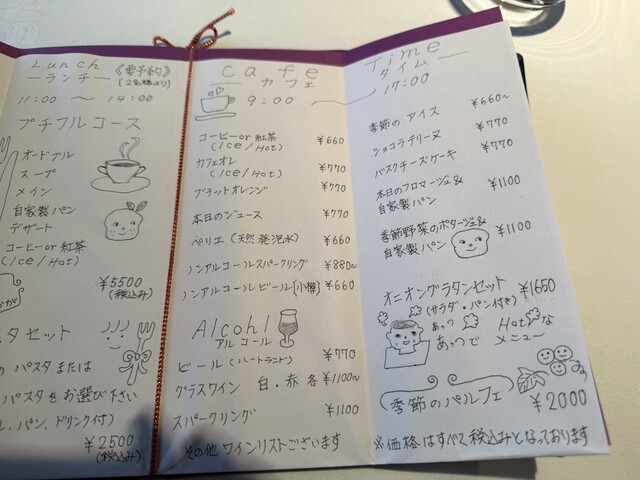 Lunch
ランチ
《要予約》
(2名様より)
11:00 〜 14:00
プチフルコース
オードブル
スープ
メイン
自家製パン
デザート
コーヒー or 紅茶
(Ice / Hot)
¥5500
(税込み)
タセット
のパスタまたは
パスタをお選び下さい
、パン、ドリンク付)
¥2500
(税込み)
Cafe
カフェ
9:00 〜
コーヒー or 紅茶 ¥660
(Ice/Hot)
カフェオレ ¥770
(Ice/Hot)
ブラットオレンジ ¥770
本日のジュース ¥770
ペリエ (天然発泡水) ¥660
ノンアルコールスパークリング ¥880〜
ノンアルコールビール[小樽] ¥660
Alcohl
アルコール
ビール (ハートランド) ¥770
グラスワイン 白・赤 各 ¥1100〜
スパークリング ¥1100
その他ワインリストございます
Time
タイム
17:00
季節のアイス ¥660〜
ショコラテリーヌ ¥770
バスクチーズケーキ ¥770
本日のフロマージュ&
自家製パン ¥1100
季節野菜のポタージュ&
自家製パン ¥1100
オニオングラタンセット ¥1650
(サラダ・パン付き)
あっつ
あっつで Hotな
メニュー
季節のパルフェ
¥2000
※価格はすべて税込みとなっております